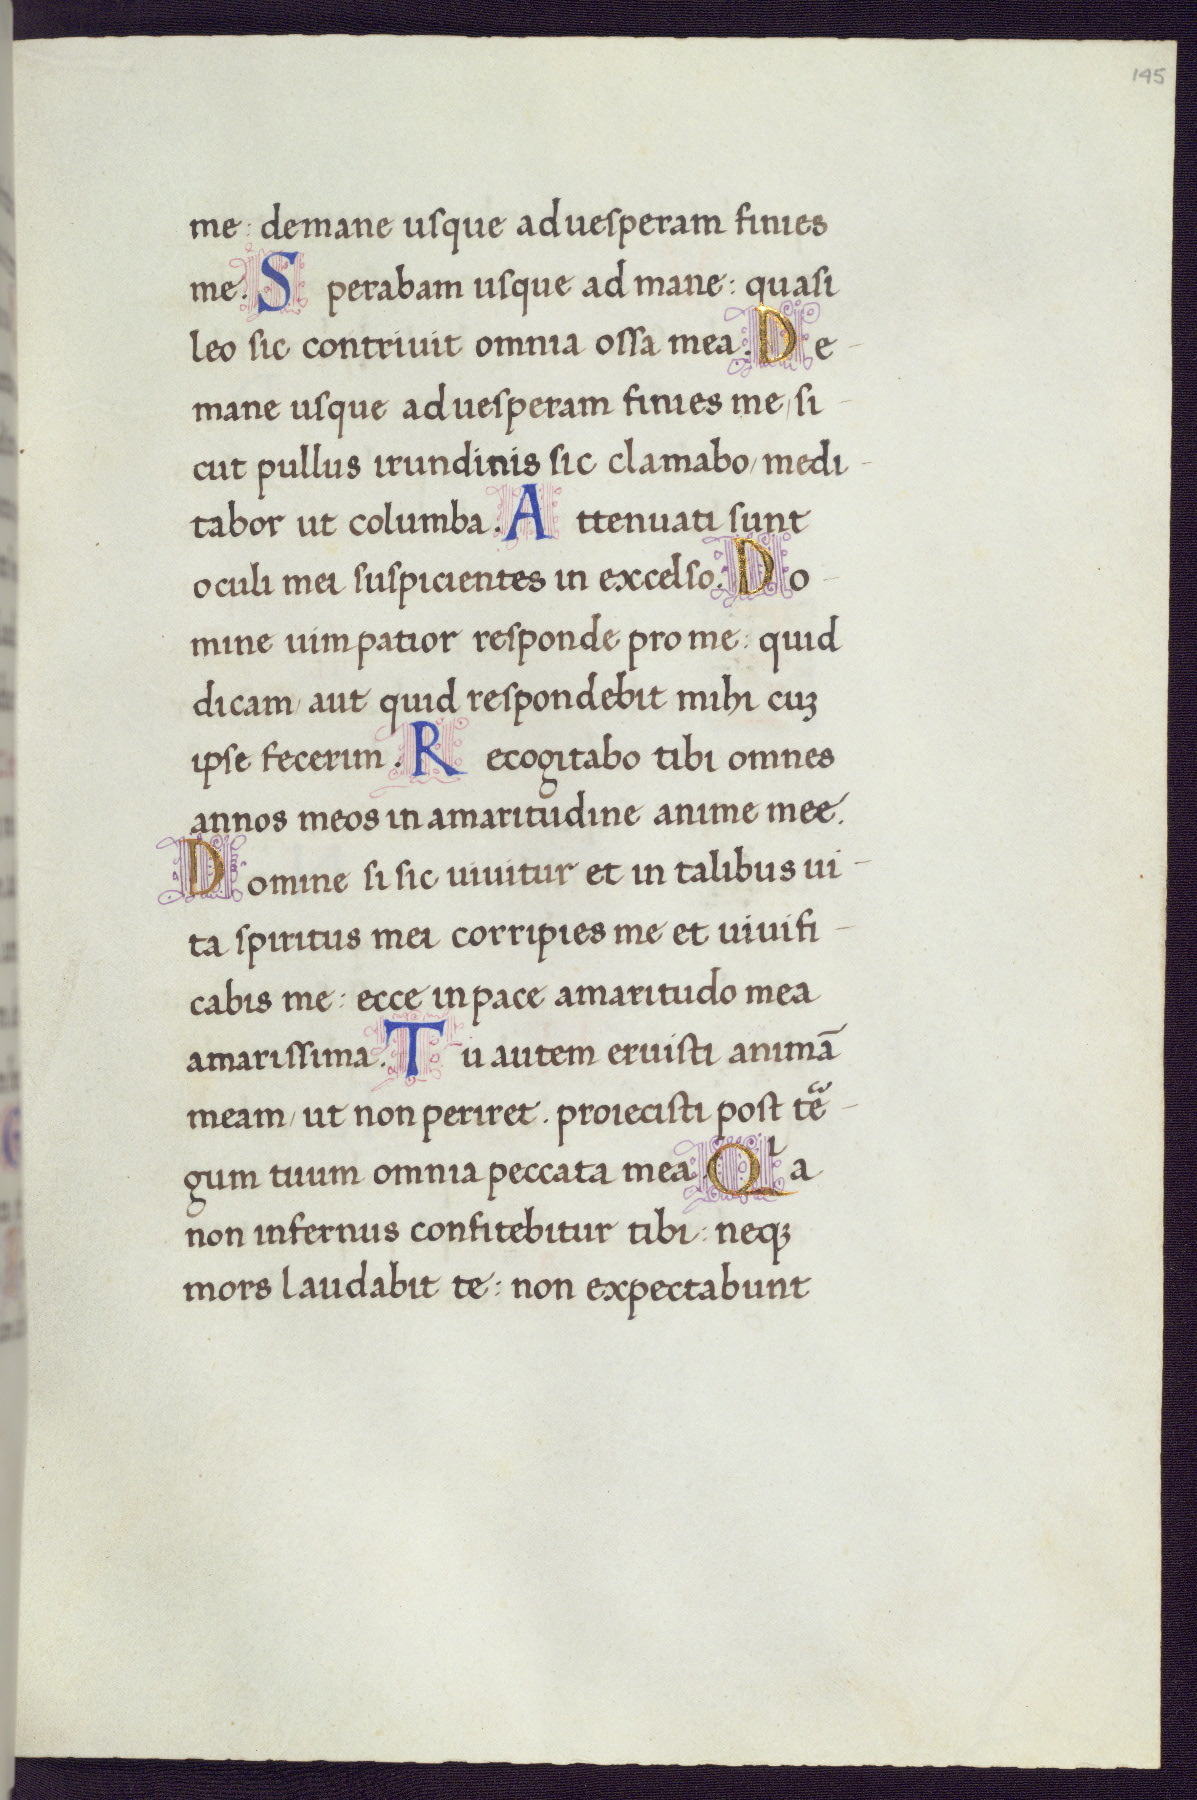 195
me: demane uſque adueſperam finies
me. Sperabam uſque ad mane: quaſi
leo sic contriuit omnia oſſa mea. De-
mane uſque adueſperam finies me, si-
cut pullus irundinis sic clamabo, medi-
tabor ut columba. Attenuati sunt
oculi mei suſpicientes in excelſo. Do-
mine uimpatior reſponde pro me: quid
dicam, aut quid reſpondebit mihi cuꝫ
ipſe fecerim. Recogitabo tibi omnes
annos meos in amaritudine anime mee.
Domine si sic uiuitur et in talibus ui-
ta spiritus mei corripies me et uiuifi-
cabis me: ecce inpace amaritudo mea
amariſſima. Tu autem eruiſti animā
meam, ut non periret. proieciſti poſt tẽ-
gum tuum omnia peccata mea. Qͥa
non infernus confitebitur tibi: neqꝫ
mors laudabit te: non expectabunt